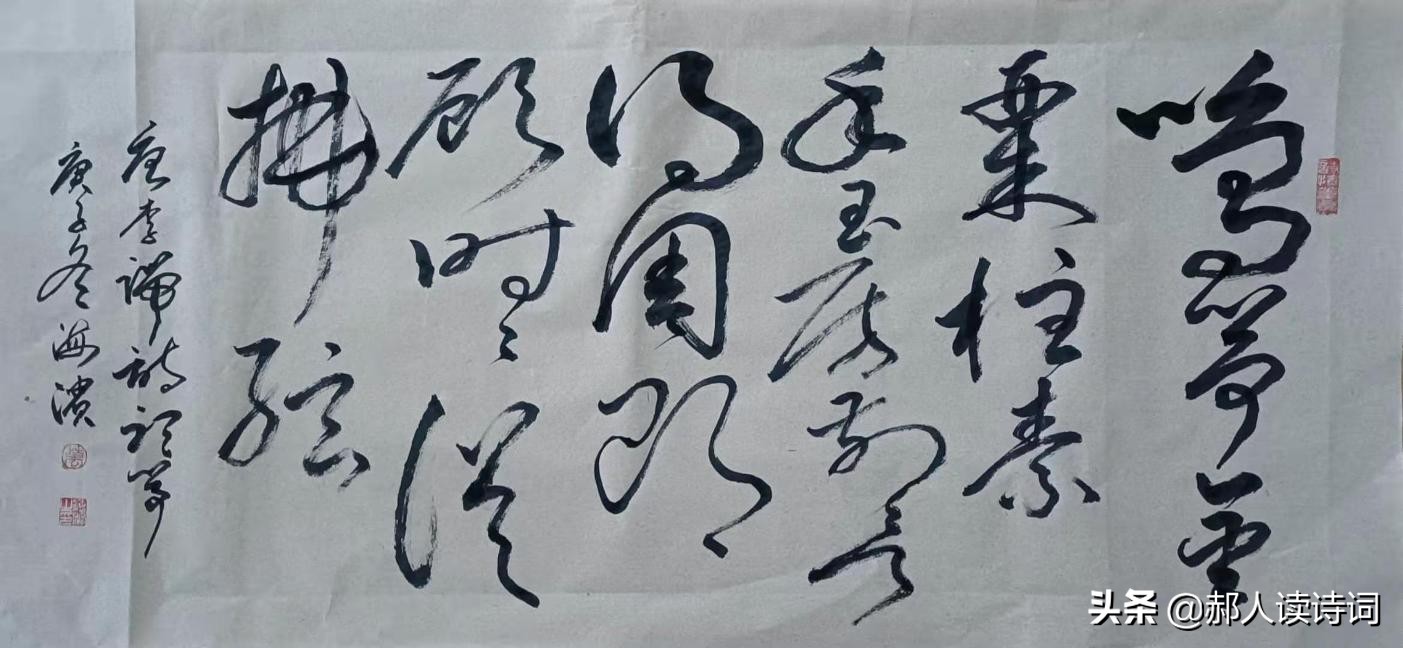 鸣筝金
粟柱素
手玉房前欲
得周郎
顾时时误
拂弦
唐李端诗听筝
庚子冬海滨
头条 @郝人读诗词